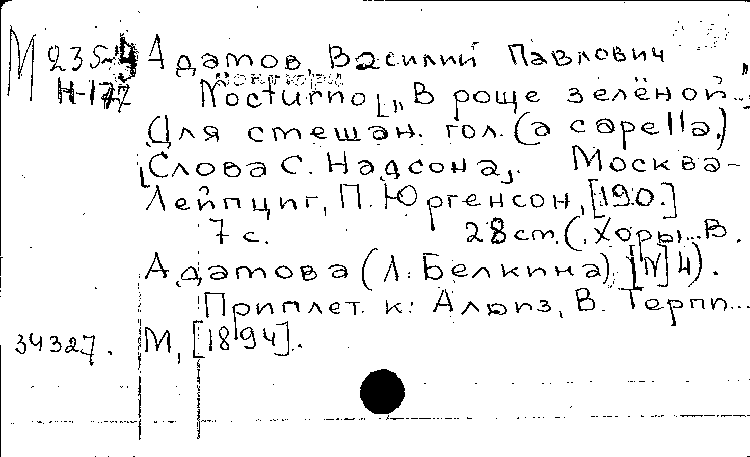 М 235-4 Адамов, Василий Павлович
Н-177 Ноктюрн
Nocturno [„В роще зелёной..."]
Для смешан. гол. (a capella.)
[Слова С. Надсона]. Москва-
Лейпциг, П. Юргенсон, [190.]
7 с. 28 см. (Хоры.. В.
Адамова (Л. Белкина) [N] 4).
Приплет. к: Алоиз, В. Терпи...
34327. М, [1894].